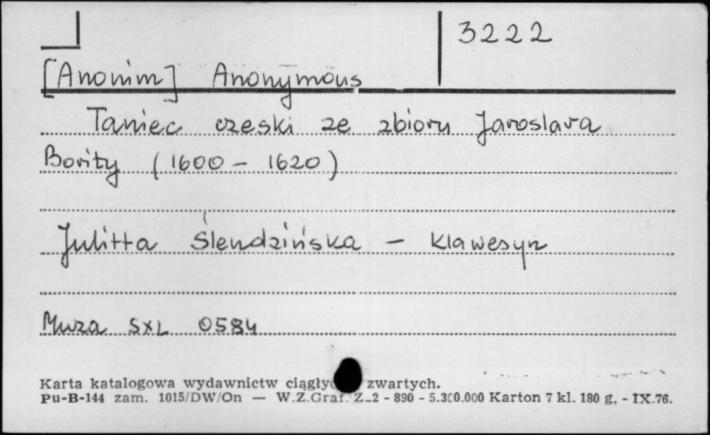 3222
[Anonim] Anonymous
Taniec czeski ze zbioru Jaroslava
Bority (1600 - 1620)
Julitta Ślendzińska - klawesyn
Muza SXL 0584
Karta katalogowa wydawnictw ciągły zwartych.
Pu-B-144 zam. 1015/DW/On — W.Z.Graf. Z-2 - 890 - 5.300.000 Karton 7 kl. 180 g, - IX.76.